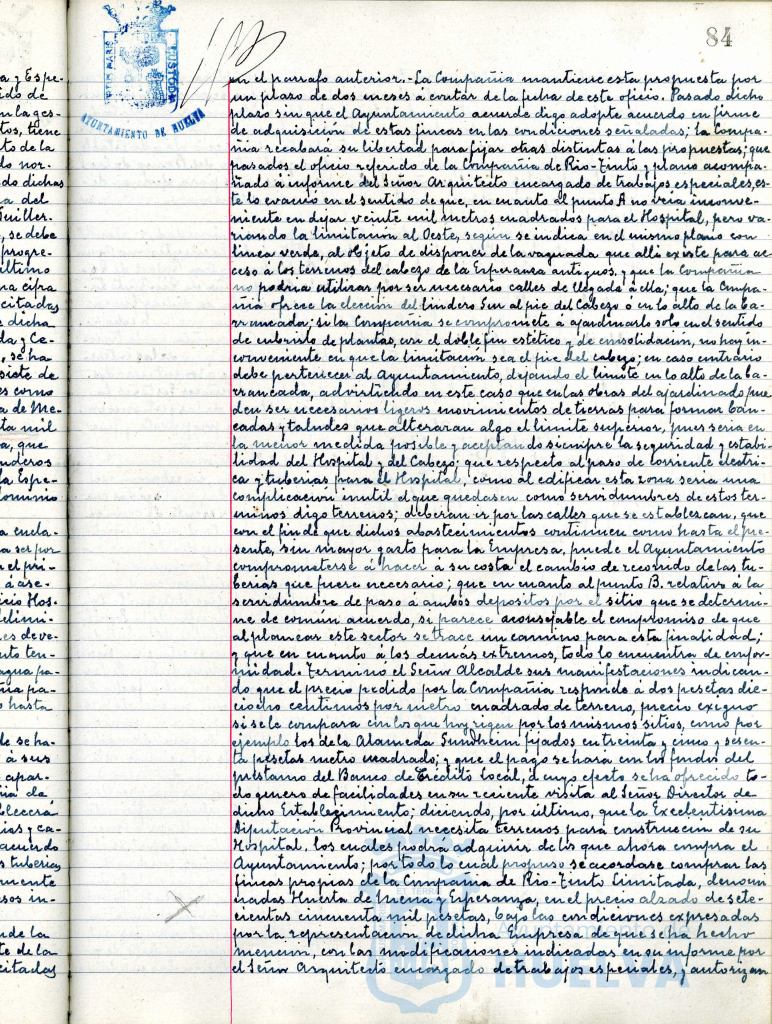 84
PORTUS MARIS
CUSTODIA
AYUNTAMIENTO DE HUELVA
en el parrafo anterior.-La Compañia mantiene esta propuesta por
un plazo de dos meses á contar de la fecha de este oficio. Pasado dicho
plazo sin que el Ayuntamiento acuerde digo adopte acuerdo en firme
de adquisición de estas fincas en las condiciones señaladas; la Compa-
ñia recabará su libertad para fijar otras distintas á las propuestas; que
pasados el oficio referido de la Compañia de Rio-Tinto y plano acompa-
ñado á informe del Señor Arquitecto encargado de trabajos especiales, és-
te lo evacuó en el sentido de que, en cuanto al punto A no veia inconve-
niente en dejar veinte mil metros cuadrados para el Hospital, pero va-
riando la limitación al Oeste, según se indica en el mismo plano con
linea verde, al objeto de disponer de la vaguada que alli existe para ac-
ceso á los terrenos del cabezo de la Esperanza antiguos, y que la Compañia
no podria utilizar por ser necesario calles de llegada á ella; que la Compa-
ñia ofrece la elección del lindero Sur al pie del Cabezo ó en lo alto de la ba-
rrancada; si la Compañia se compromete á ajardinarlo solo en el sentido
de cubrirlo de plantas, con el doble fin estético y de consolidación, no hay in-
conveniente en que la limitación sea el pie del cabezo; en caso contrario
debe pertenecer al Ayuntamiento, dejando el limite en lo alto de la ba-
rrancada, advirtiendo en este caso que en las obras del ajardinado pue-
den ser necesarios ligeros movimientos de tierras para formar ban-
cadas y taludes que alteraran algo el limite superior, pues seria en
la menor medida posible y aceptando siempre la seguridad y estabi-
lidad del Hospital y del Cabezo; que respecto al paso de corriente electri-
ca y tuberias para el Hospital, como al edificar esta zona seria una
complicacion inutil el que quedasen como servidumbres de estos ter-
minos digo terrenos; deberan ir por las calles que se establezcan, que
con el fin de que dichos abastecimientos continuen como hasta el pre-
sente, sin mayor gasto para la Empresa, puede el Ayuntamiento
comprometerse á hacer á su costa el cambio de recorrido de las tu-
berias que fuere necesario; que en cuanto al punto B. relativo á la
servidumbre de paso á ambos depositos por el sitio que se determi-
ne de comun acuerdo, si parece aconsejable el compromiso de que
al planear este sector se trace un camino para esta finalidad;
y que en cuanto á los demás extremos, todo lo encuentra de confor-
midad. Terminó el Señor Alcalde sus manifestaciones indican-
do que el precio pedido por la Compañia responde á dos pesetas die-
ciocho centimos por metro cuadrado de terreno, precio exiguo
si se le compara con los que hoy rigen por los mismos sitios, como por
ejemplo los de la Alameda Sundheim fijados en treinta y cinco y sesen-
ta pesetas metro cuadrado; y que el pago se hara con los fondos del
préstamo del Banco de Crédito Local, á cuyo efecto se ha ofrecido to-
do genero de facilidades en su reciente visita al Señor Director de
dicho Establecimiento; diciendo, por último, que la Excelentisima
Diputacion Provincial necesita terrenos para construccion de su
Hospital, los cuales podrá adquirir de los que ahora compra el
Ayuntamiento; por todo lo cual propuso se acordase comprar las
fincas propias de la Compañia de Rio-Tinto Limitada, denomi-
nadas Huerta de Mena y Esperanza, en el precio alzado de sete-
cientas cincuenta mil pesetas, bajo las condiciones expresadas
por la representacion de dicha Empresa de que se ha hecho
mencion, con las modificaciones indicadas en su informe por
el Señor Arquitecto encargado de trabajos especiales, y autorizan